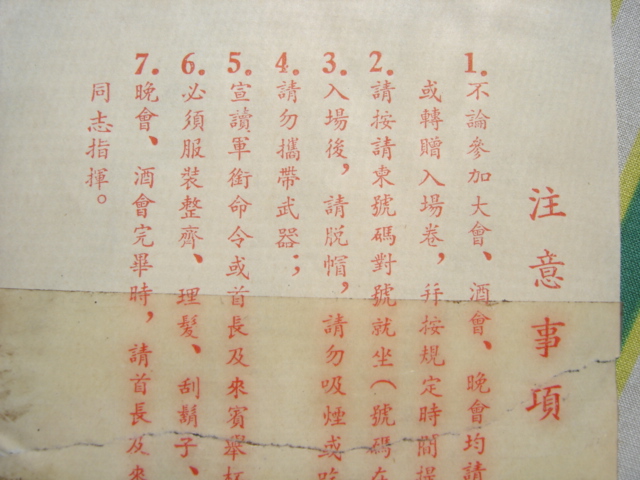 注意事項
1.不論參加大會、酒會、晚會均請
或轉贈入場卷，并按規定時間提
2.請按請柬號碼對號就坐（號碼在
3.入場後，請脱帽，請勿吸煙或吃
4.請勿攜帶武器；
5.宣讀軍銜命令或首長及來賓舉杯
6.必須服裝整齊、理髮、刮鬍子、
7.晚會、酒會完畢時，請首長及來
同志指揮。